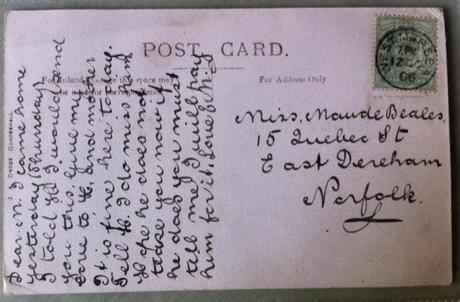 POST CARD.
For Inland Postage this space may
For Address Only
Dear M. I came home
yesterday (Thursday)
I told H. I would send
you this, give my
love to H. and mother
It is fine here today.
Tell H. I do miss him
Hope he does not
tease you now if
he does you must
tell me I will pay
him for it. Love f. M.J.
Miss, Maude Beales,
15 Quebec St
East Dereham
Norfolk.